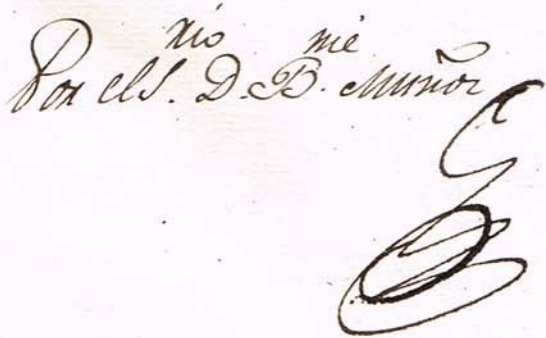 Por el S.ʳⁱᵒ D. B.ᵐᵉ Muñoz